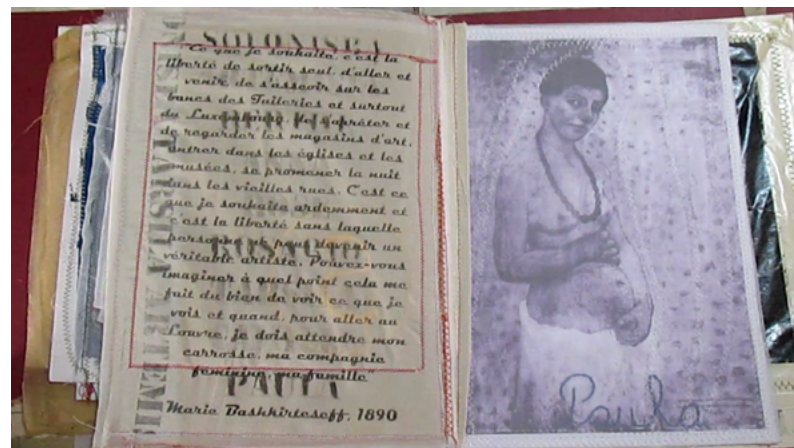 SOFONISBA
"Ce que je souhaite, c'est la
liberté de sortir seul, d'aller et
venir, de s'asseoir sur les
bancs des Tuileries et surtout
du Luxembourg, de s'aprêter et
de regarder les magasins d'art,
entrer dans les églises et les
musées, se promener la nuit
dans les vieilles rues. C'est ce
que je souhaite ardemment et
c'est la liberté sans laquelle
personne ne peut devenir un
véritable artiste. Pouvez-vous
imaginer à quel point cela me
fait du bien de voir ce que je
vois et quand, pour aller au
Louvre, je dois attendre mon
carrosse, ma compagnie
féminine, ma famille"
PAULA
Marie Bashkirtseff, 1890
Paula